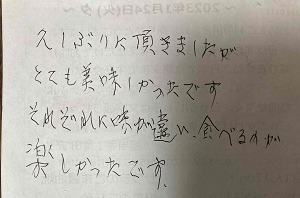 ～ 2023年3月24日(火) 夕 ～
久しぶりに頂きましたが
とても美味しかったです
それぞれに味が違い、食べるのが
楽しかったです。